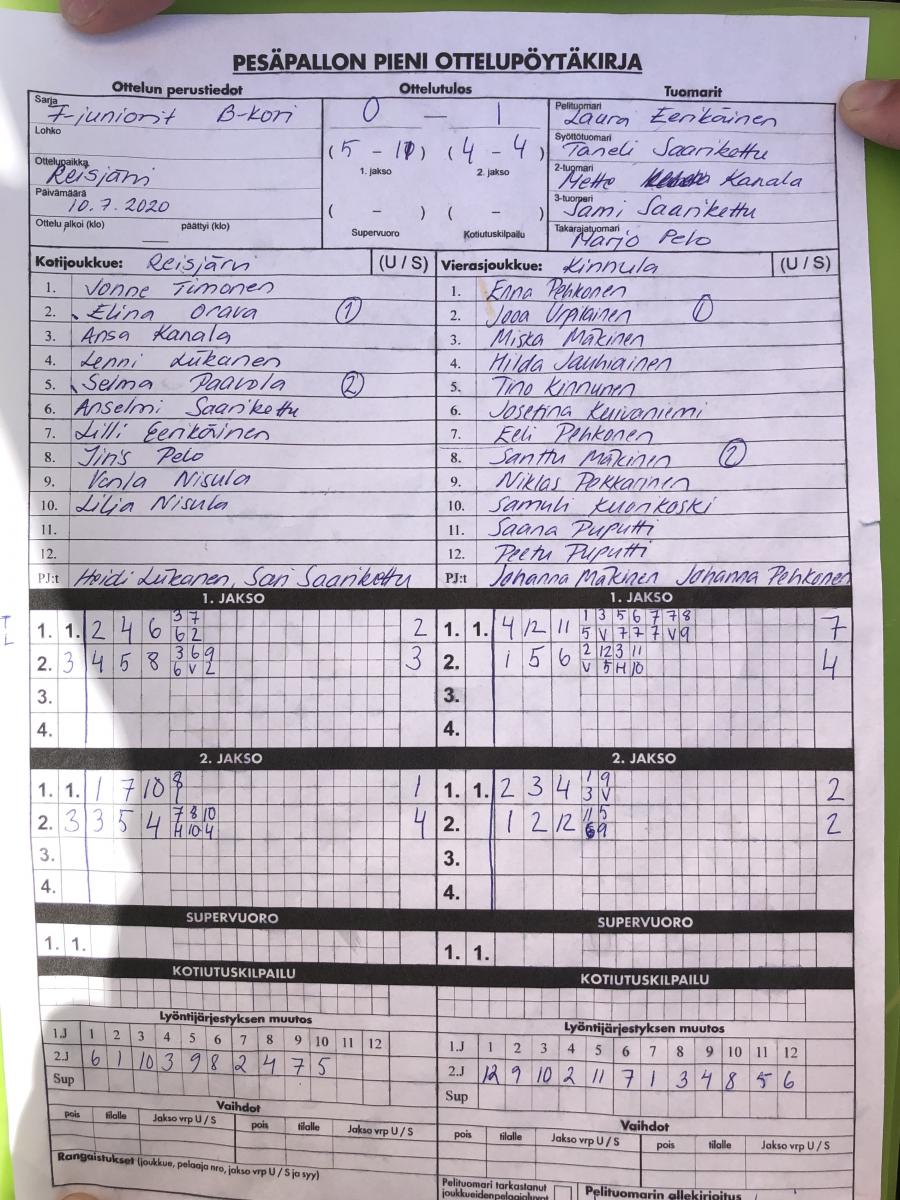 PESÄPALLON PIENI OTTELUPÖYTÄKIRJA
Ottelun perustiedot Ottelutulos Tuomarit
Sarja F-juniorit B-kori
Lohko
Ottelupaikka Reisjärvi
Päivämäärä 10.7.2020
Ottelu alkoi (klo) — päättyi (klo)
0 — 1
(5 - 11) (4 - 4)
1. jakso 2. jakso
( - ) ( - )
Supervuoro Kotiutuskilpailu
Pelituomari Laura Eerikäinen
Syöttötuomari Taneli Saarikettu
2-tuomari Mette Kanala
3-tuomari Sami Saarikettu
Takarajatuomari Marjo Pelo
Kotijoukkue: Reisjärvi (U / S)
1. Jonne Timonen
2. Elina Orava 1
3. Ansa Kanala
4. Lenni Liikanen
5. Selma Paavola 2
6. Anselmi Saarikettu
7. Lilli Eerikäinen
8. Iiris Pelo
9. Vanla Nisula
10. Lilja Nisula
11.
12.
PJ:t Heidi Liikanen, Sari Saarikettu
Vierasjoukkue: Kinnula (U / S)
1. Enna Pehkonen
2. Jooa Urpilainen 1
3. Miska Mäkinen
4. Hilda Jauhiainen
5. Tino Kinnunen
6. Josefina Kuivaniemi
7. Eeli Pehkonen
8. Santtu Mäkinen 2
9. Niklas Pekkarinen
10. Samuli Kuorikoski
11. Saana Puputti
12. Peetu Puputti
PJ:t Johanna Mäkinen Johanna Pehkonen
1. JAKSO
1. 1. 2 4 6 3 7 2
6 2
2. 3 4 5 8 3 6 9 3
6 V 2
3.
4.
1. JAKSO
1. 1. 4 12 11 1 3 5 6 7 7 8 7
5 V 7 7 7 V 9
2. 1 5 6 2 12 3 11 4
V 5 H 10
3.
4.
2. JAKSO
1. 1. 1 7 10 8 1
2. 3 3 5 4 7 8 10 4
H 10 4
3.
4.
2. JAKSO
1. 1. 2 3 4 1 9 2
3 V
2. 1 2 12 11 5 2
9
3.
4.
SUPERVUORO
1. 1.
SUPERVUORO
1. 1.
KOTIUTUSKILPAILU
KOTIUTUSKILPAILU
Lyöntijärjestyksen muutos
1.J 1 2 3 4 5 6 7 8 9 10 11 12
2.J 6 1 10 3 9 8 2 4 7 5
Sup
Lyöntijärjestyksen muutos
1.J 1 2 3 4 5 6 7 8 9 10 11 12
2.J 12 9 10 2 11 7 1 3 4 8 5 6
Sup
Vaihdot
pois tilalle Jakso vrp U / S pois tilalle Jakso vrp U / S
Vaihdot
pois tilalle Jakso vrp U / S pois tilalle Jakso vrp U / S
Rangaistukset (joukkue, pelaaja nro, jakso vrp U / S ja syy)
Pelituomari tarkastanut
joukkueidenpelaajaluvat
Pelituomarin allekirjoitus